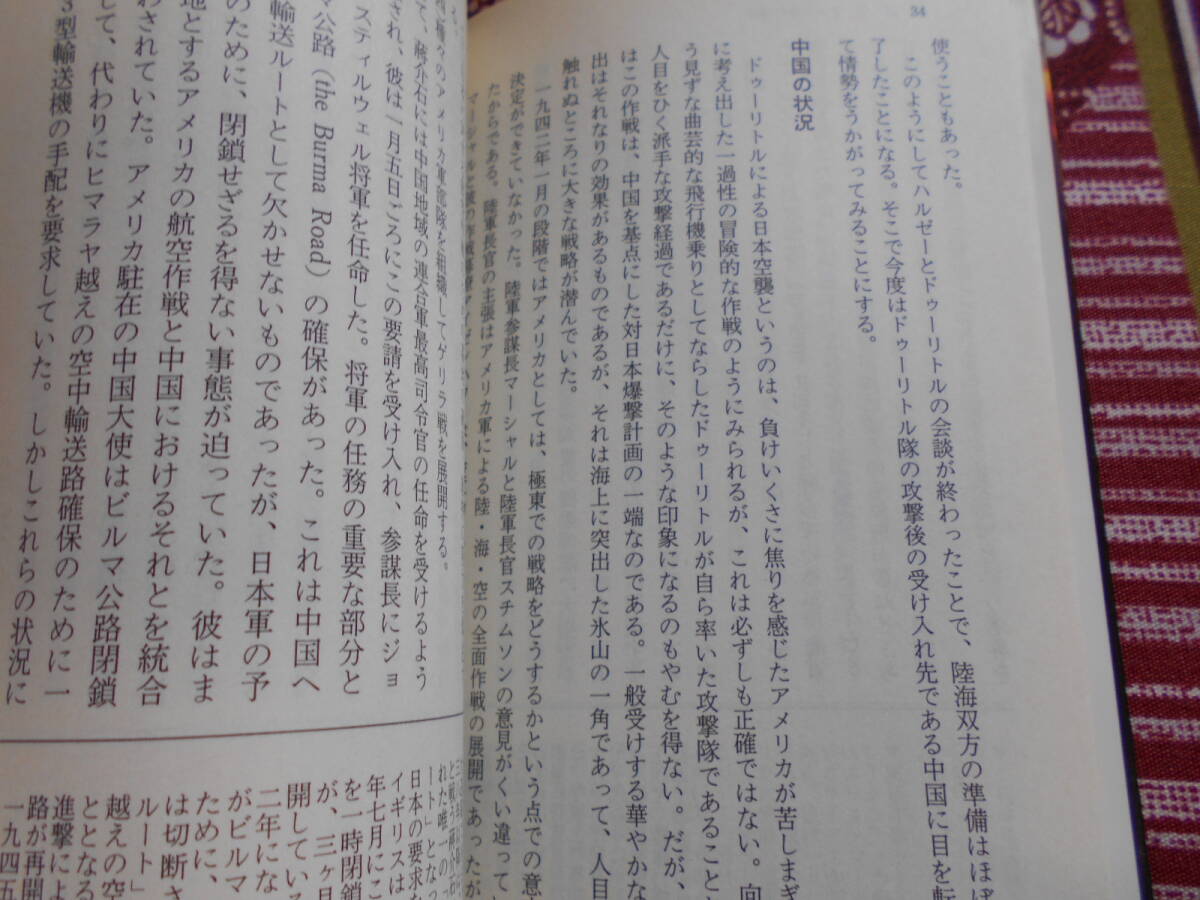 34
使うこともあった。
このようにしてハルゼーとドゥーリトルの会談が終わったことで、陸海双方の準備はほぼ
了したことになる。そこで今度はドゥーリトル隊の攻撃後の受け入れ先である中国に目を転
て情勢をうかがってみることにする。
中国の状況
ドゥーリトルによる日本空襲というのは、負けいくさに焦りを感じたアメリカが苦しまぎ
に考え出した一過性の冒険的な作戦のようにみられるが、これは必ずしも正確ではない。向
う見ずな曲芸的な飛行機乗りとしてならしたドゥーリトルが自ら率いた攻撃隊であること
人目をひく派手な攻撃経過であるだけに、そのような印象になるのもやむを得ない。だが、
はこの作戦は、中国を基点にした対日本爆撃計画の一端なのである。一般受けする華やかな
出はそれなりの効果があるものであるが、それは海上に突出した氷山の一角であって、人目
触れぬところに大きな戦略が潜んでいた。
一九四二年一月の段階ではアメリカとしては、極東での戦略をどうするかという点での意
決定ができていなかった。陸軍参謀長マーシャルと陸軍長官スチムソンの意見がくい違って
たからである。陸軍長官の主張はアメリカ軍による陸・海・空の全面作戦の展開であったが
のアメリカ軍部隊を組織してゲリラ戦を展開する。
て、蔣介石には中国地域の連合軍最高司令官の任命を受けるよう
され、彼は一月五日ごろにこの要請を受け入れ、参謀長にジョ
スティルウェル将軍を任命した。将軍の任務の重要な部分と
マ公路（the Burma Road）の確保があった。これは中国へ
輸送ルートとして欠かせないものであったが、日本軍の予
のために、閉鎖せざるを得ない事態が迫っていた。彼はま
地とするアメリカの航空作戦と中国におけるそれとを統合
わされていた。アメリカ駐在の中国大使はビルマ公路閉鎖
して、代わりにヒマラヤ越えの空中輸送路確保のために一
3型輸送機の手配を要求していた。しかしこれらの状況に
れた唯一の
ート」となっ
日本の要求な
イギリスは
年七月にこ
を一時閉鎖
が、三ヶ月
開している
二年にな
がビルマ
ために、
は切断さ
ルート」
越えの空
ととなる
進撃によ
路が再開
一九四五